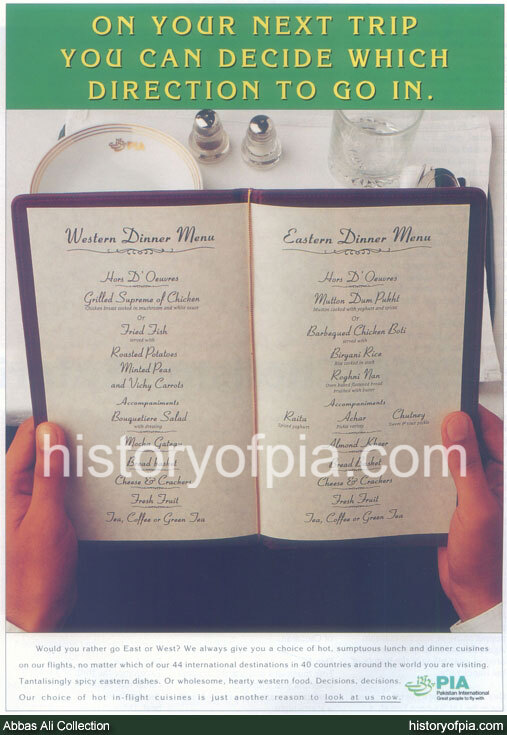 ON YOUR NEXT TRIP
YOU CAN DECIDE WHICH
DIRECTION TO GO IN.
PIA
Western Dinner Menu
Hors D'Oeuvres
Grilled Supreme of Chicken
Chicken breast cooked in mushroom and white sauce
Or
Fried Fish
served with
Roasted Potatoes
Minted Peas
and Vichy Carrots
Accompaniments
Bouquetiere Salad
with dressing
Mocha Gateau
Bread basket
Cheese & Crackers
Fresh Fruit
Tea, Coffee or Green Tea
Eastern Dinner Menu
Hors D'Oeuvres
Mutton Dum Pukht
Mutton cooked with yoghurt and spices
Or
Barbequed Chicken Boti
served with
Biryani Rice
Rice cooked in stock
Roghni Nan
Oven baked flavoured bread
brushed with butter
Accompaniments
Raita Achar Chutney
Spiced yoghurt Pickle variety Sweet & sour pickle
Almond Kheer
Bread basket
Cheese & Crackers
Fresh Fruit
Tea, Coffee or Green Tea
historyofpia.com
Would you rather go East or West? We always give you a choice of hot, sumptuous lunch and dinner cuisines
on our flights, no matter which of our 44 international destinations in 40 countries around the world you are visiting.
Tantalisingly spicy eastern dishes. Or wholesome, hearty western food. Decisions, decisions.
Our choice of hot in-flight cuisines is just another reason to look at us now.
PIA
Pakistan International
Great people to fly with
Abbas Ali Collection
historyofpia.com